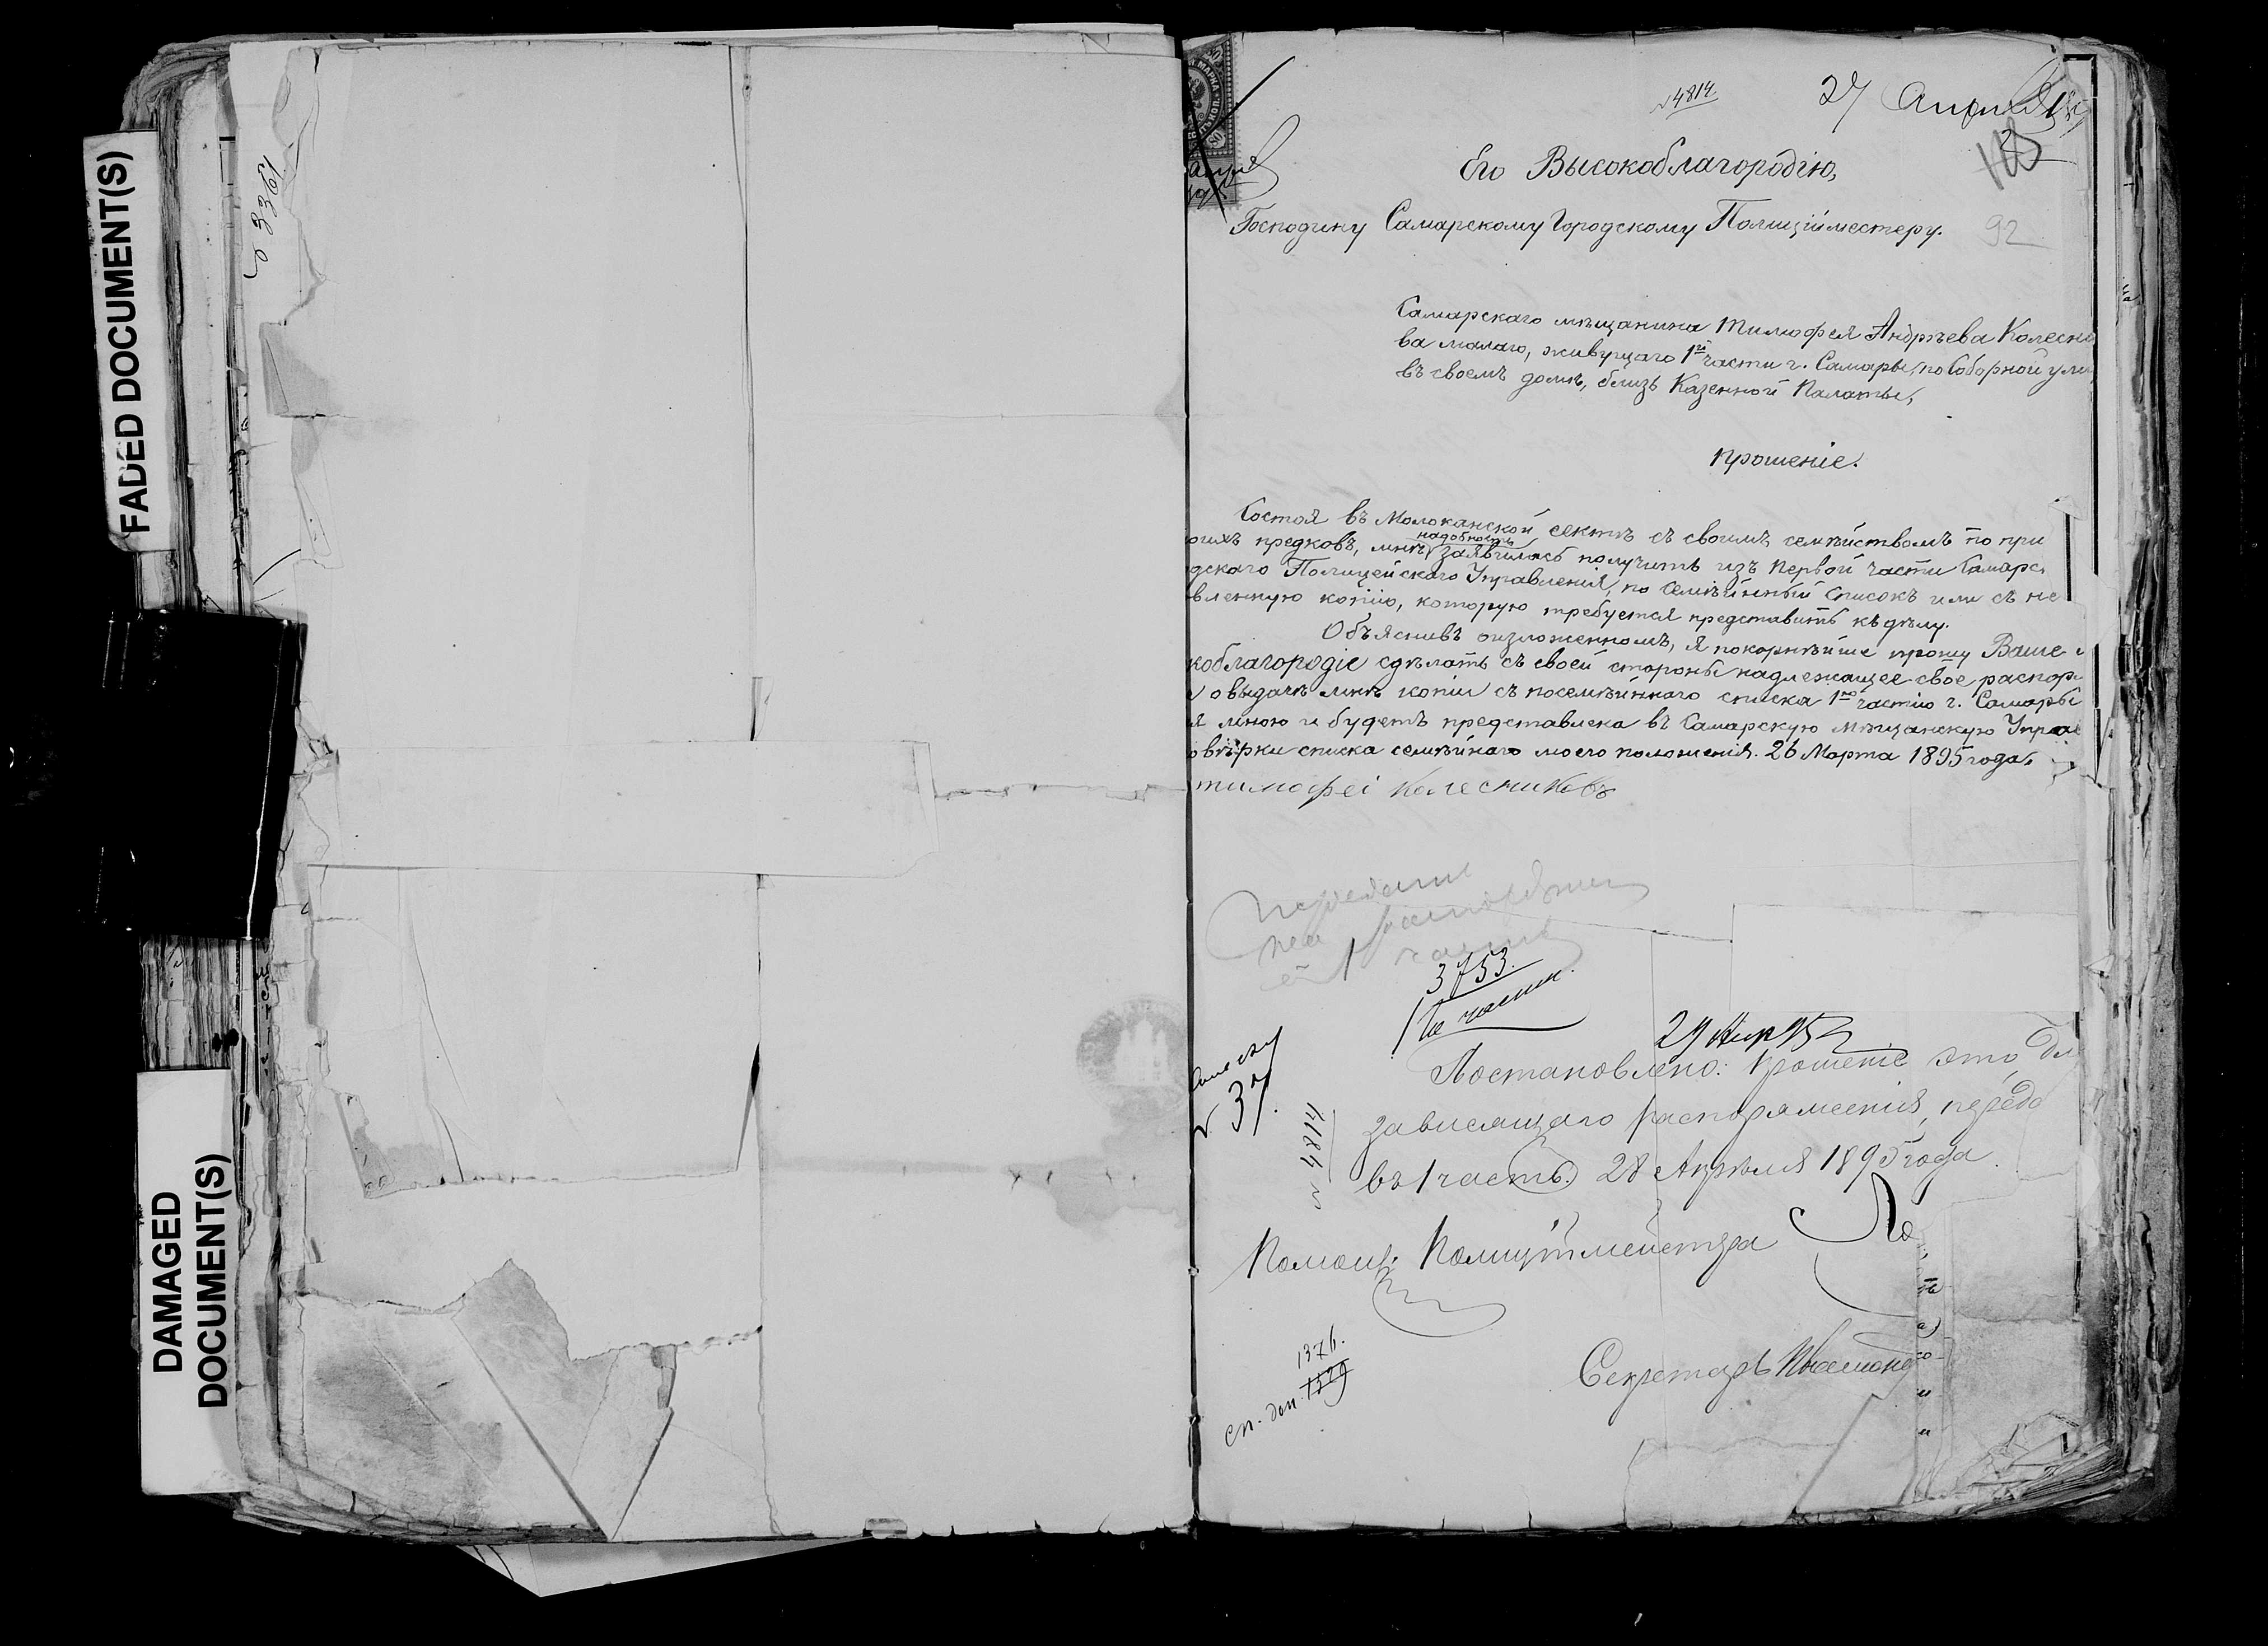 FADED DOCUMENT(S)
DAMAGED
DOCUMENT(S)
3361
№ 4814.
27
92
Его Высокоблагородію,
Господину Самарскому Городскому Полиційместеру.
Самарскаго мѣщанина Тимофея Андрѣева Колесни
ва малаго, живущаго 1й части г. Самары, по Соборной ули
въ своемъ домѣ, близь Казенной Палаты,
прошеніе.
Состоя въ Молоканской сектѣ съ своимъ семѣйствомъ по при
оихъ предковъ, мнѣ надобность заявилась получить изъ первой части Самарс
дскаго Полицейскаго Управленія, по Семѣйнный Списокъ или съ не
вленную копію, которую требуется представить къ дѣлу.
Объяснивъ оизложенномъ, я покорнѣйше прошу Ваше
коблагородіе сдѣлать съ своей стороны надлежащее свое распор
о выдачѣ мнѣ копіи съ посемѣйннаго списка 1ю частію г. Самары
я мною и будетъ представлена въ Самарскую мѣщанскую Управ
овѣрки списка семѣйнаго моего положенія. 26 Марта 1895 года,
тимофеі колесниковъ
3753.
1й части.
29 Апр 95
№ 37.
№ 4814
Постановлено: Прошеніе это, дл
зависящаго распоряженія, переда
въ 1 часть. 28 Апрѣля 1895 года
Помощ. Полиціймейстера
1376.
1529
Секретарь